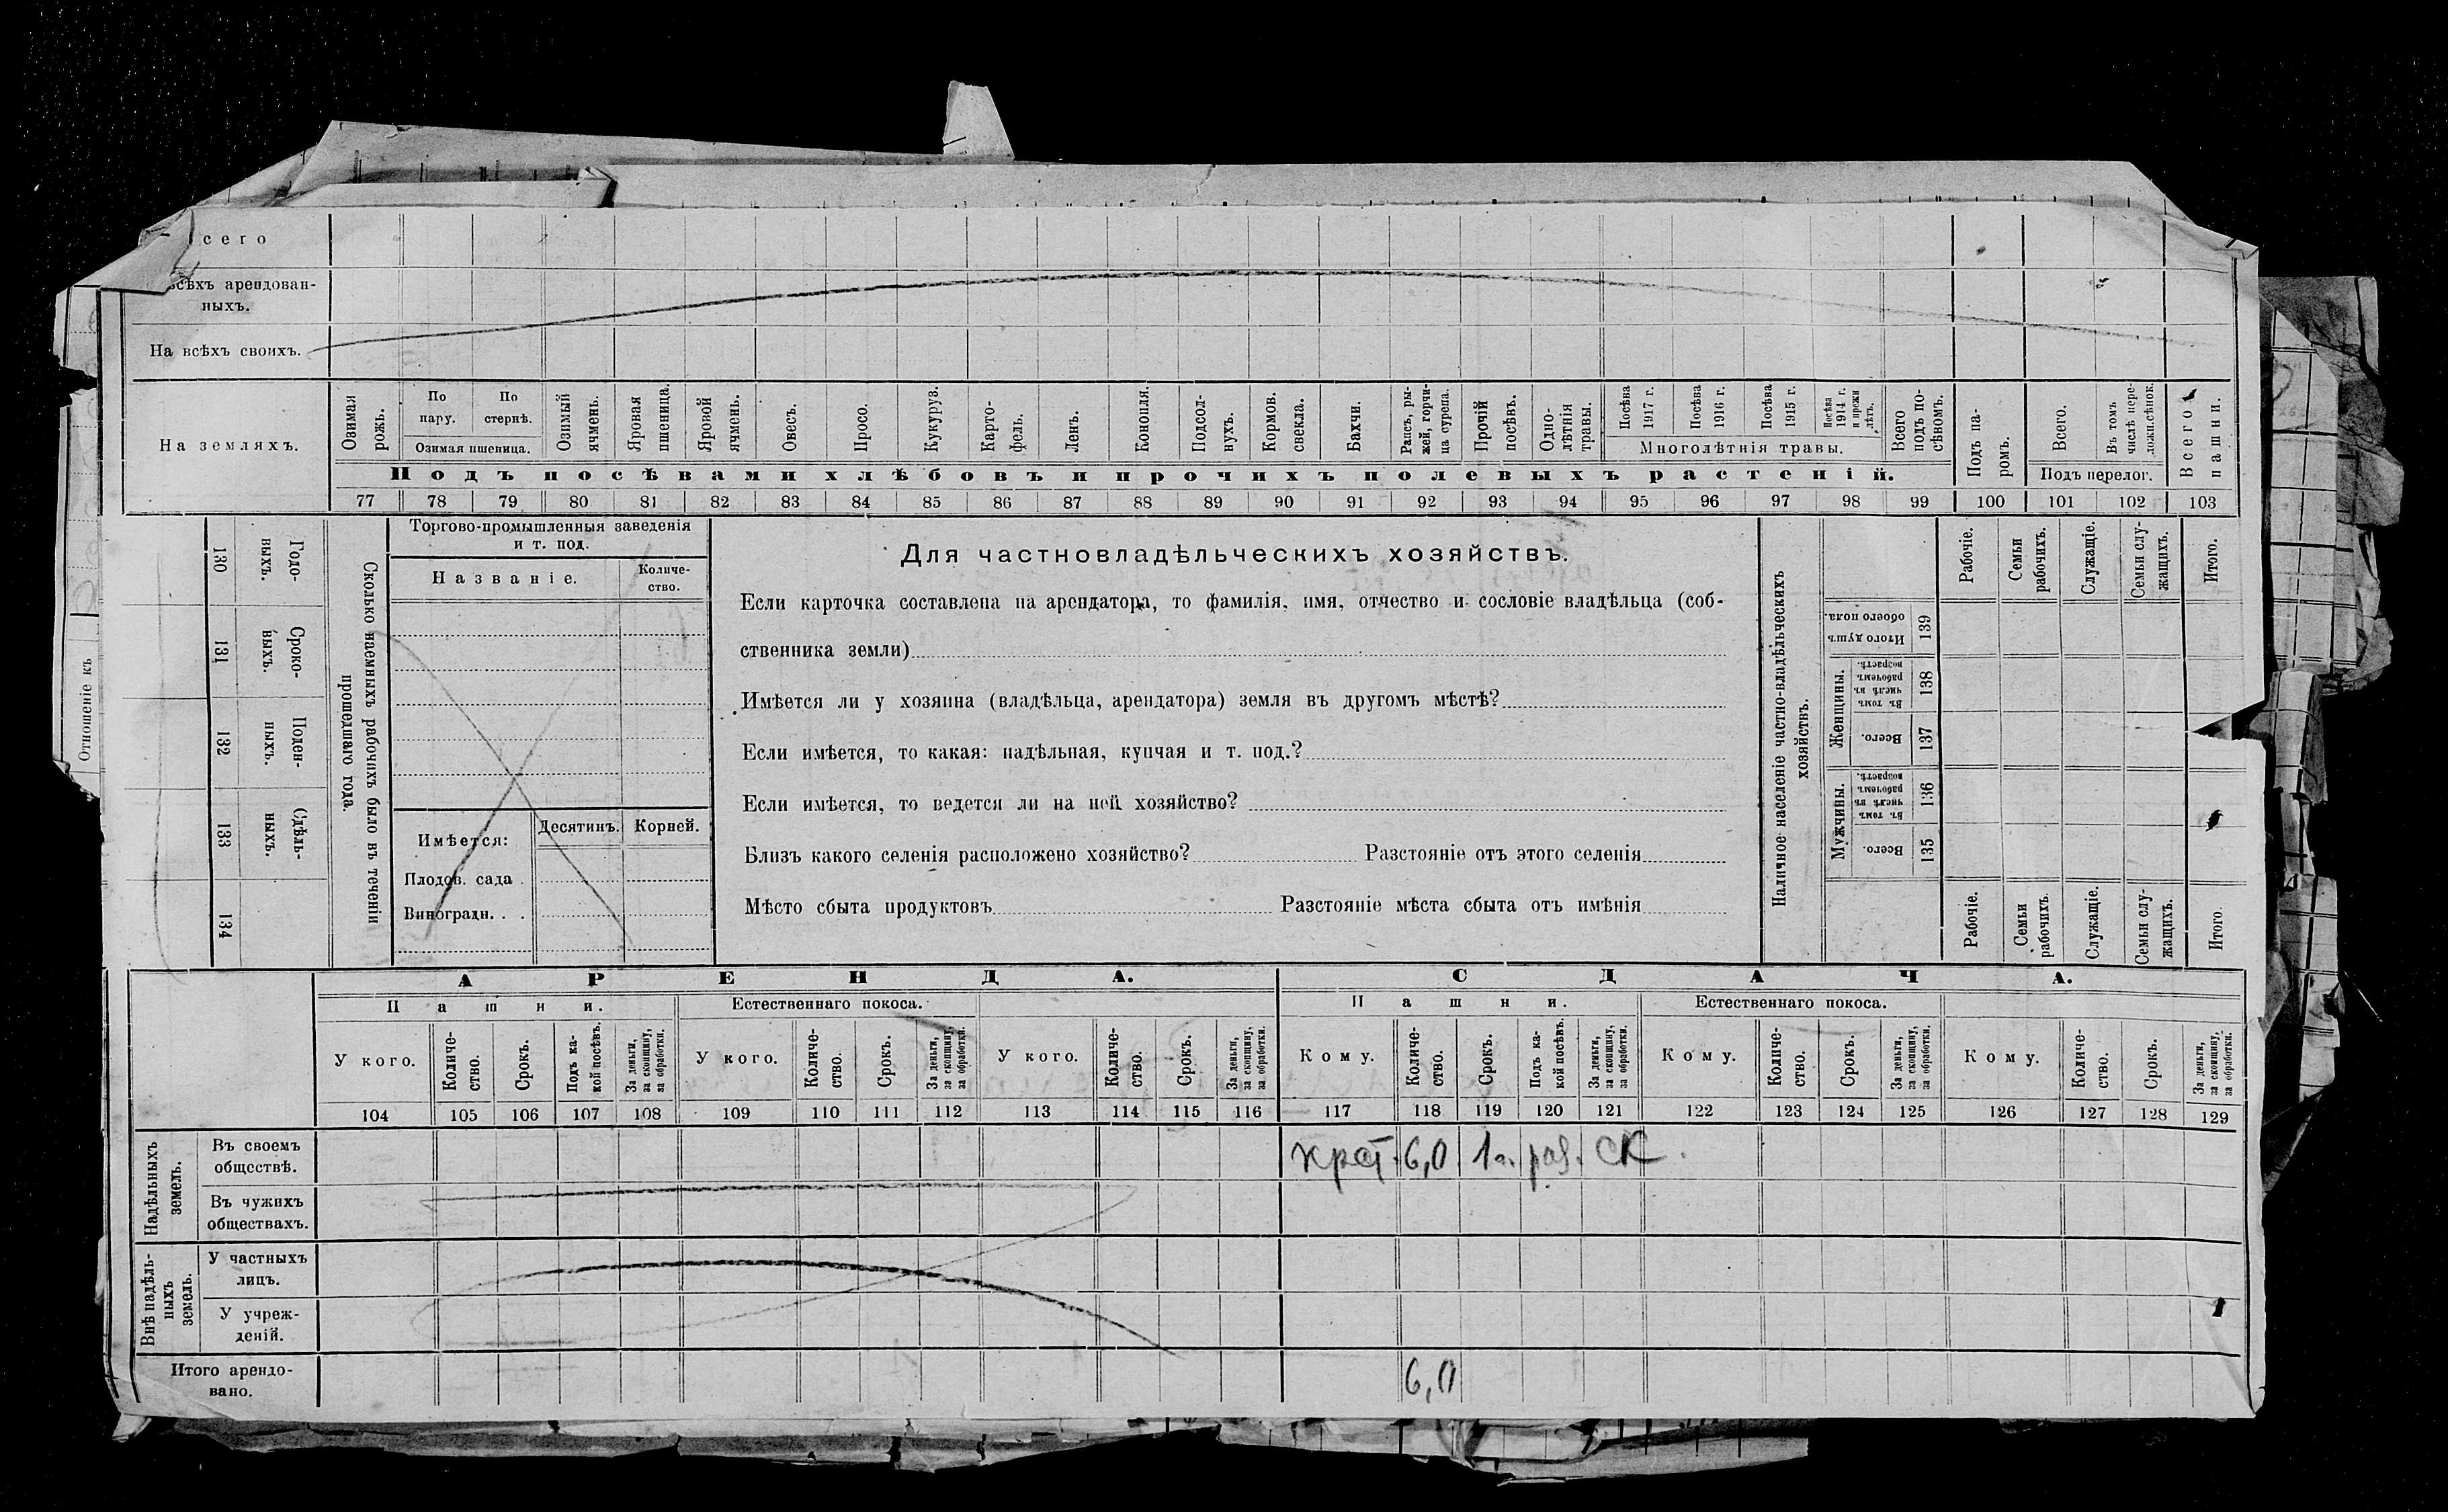 сего
всѣхъ арендован-
ныхъ.
На всѣхъ своихъ.
На земляхъ.
Озимая рожь.
По пару.
По стернѣ.
Озимая пшеница.
Озимый ячмень.
Яровая пшеница.
Яровой ячмень.
Овесъ.
Просо.
Кукуруз.
Карто-
фель.
Ленъ.
Конопля.
Подсол-
нухъ.
Кормов. свекла.
Бахчи.
Рапсъ, ры-
жей, горчи-
ца сурепа.
Прочій посѣвъ.
Одно-
лѣтнія травы.
Посѣва 1917 г.
Посѣва 1916 г.
Посѣва 1915 г.
Посѣва 1914 г. и прежн лѣтъ.
Многолѣтнія травы.
Всего подъ по-
сѣвомъ.
Подъ па-
ромъ.
Всего.
Въ томъ числѣ пере-
ложн.сѣнок.
Подъ перелог.
Всего пашни.
Подъ посѣвами хлѣбовъ и прочихъ полевыхъ растеній.
77 78 79 80 81 82 83 84 85 86 87 88 89 90 91 92 93 94 95 96 97 98 99 100 101 102 103
Отношеніе къ
130 Годо-
выхъ.
131 Сроко-
выхъ.
132 Поден-
ныхъ.
133 Сдѣль-
ныхъ.
134
Сколько наемныхъ рабочихъ было въ теченіи
прошедшаго года.
Торгово-промышленныя заведенія
и т. под.
Названіе.
Количе-
ство.
Имѣется:
Десятинъ.
Корней.
Плодов. сада .
Виноградн. . .
Для частновладѣльческихъ хозяйствъ.
Если карточка составлена на арендатора, то фамилія, имя, отчество и сословіе владѣльца (соб-
ственника земли)
Имѣется ли у хозяина (владѣльца, арендатора) земля въ другомъ мѣстѣ?
Если имѣется, то какая: надѣльная, купчая и т. под.?
Если имѣется, то ведется ли на ней хозяйство?
Близъ какого селенія расположено хозяйство? Разстояніе отъ этого селенія
Мѣсто сбыта продуктовъ Разстояніе мѣста сбыта отъ имѣнія
Наличное населеніе частно-владѣльческихъ
хозяйствъ.
Рабочіе.
Семьи рабочихъ.
Служащіе.
Семьи слу-
жащихъ.
Итого.
Итого душъ обоего пола.
139
Женщины.
Въ томъ числѣ въ рабочемъ возрастѣ.
138
Всего.
137
Мужчины.
Въ томъ числѣ въ рабочемъ возрастѣ.
136
Всего.
135
Рабочіе.
Семьи рабочихъ.
Служащіе.
Семьи слу-
жащихъ.
Итого.
АРЕНДА.
СДАЧА.
Пашни.
Естественнаго покоса.
Пашни.
Естественнаго покоса.
У кого.
Количе-
ство.
Срокъ.
Подъ ка-
кой посѣвъ.
За деньги, за скопщину, за обработки.
У кого.
Количе-
ство.
Срокъ.
За деньги, за скопщину, за обработки.
У кого.
Количе-
ство.
Срокъ.
За деньги, за скопщину, за обработки.
Кому.
Количе-
ство.
Срокъ.
Подъ ка-
кой посѣвъ.
За деньги, за скопщину, за обработки.
Кому.
Количе-
ство.
Срокъ.
За деньги, за скопщину, за обработки.
Кому.
Количе-
ство.
Срокъ.
За деньги, за скопщину, за обработки.
104 105 106 107 108 109 110 111 112 113 114 115 116 117 118 119 120 121 122 123 124 125 126 127 128 129
Надѣльныхъ земель.
Въ своемъ
обществѣ.
крст. 6,0 1 г. раз. ск.
Въ чужихъ
обществахъ.
Внѣ надѣль-
ныхъ земель.
У частныхъ
лицъ.
У учреж-
деній.
Итого арендо-
вано.
6,0